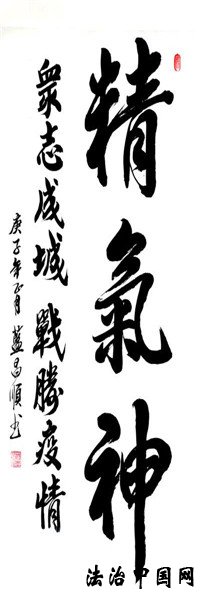 精氣神
眾志成城 戰勝疫情
庚子年正月 蓝昌順书
法治中国网